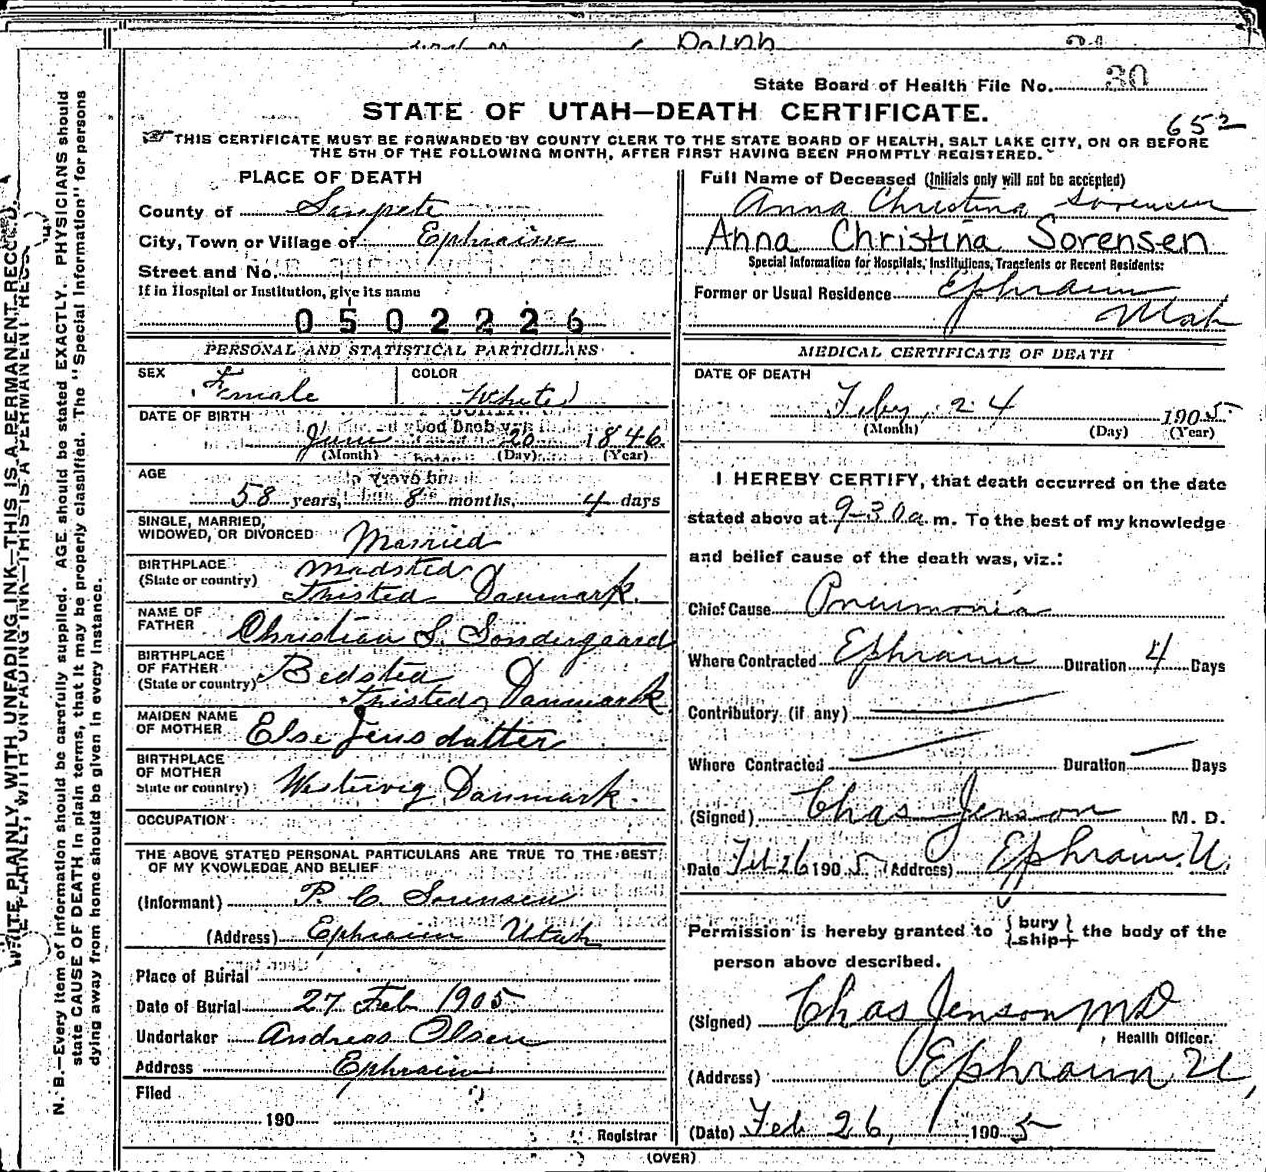 Ralph
State Board of Health File No. 30
STATE OF UTAH—DEATH CERTIFICATE.
65 2
THIS CERTIFICATE MUST BE FORWARDED BY COUNTY CLERK TO THE STATE BOARD OF HEALTH, SALT LAKE CITY, ON OR BEFORE
THE 5TH OF THE FOLLOWING MONTH, AFTER FIRST HAVING BEEN PROMPTLY REGISTERED.
PLACE OF DEATH
County of Sanpete
City, Town or Village of Ephraim
Street and No.
If in Hospital or Institution, give its name
0502226
PERSONAL AND STATISTICAL PARTICULARS
SEX Female COLOR White
DATE OF BIRTH
June 20 1846
(Month) (Day) (Year)
AGE
58 years, 8 months, 4 days
SINGLE, MARRIED,
WIDOWED, OR DIVORCED Married
BIRTHPLACE Madsted
(State or country) Thisted Danmark.
NAME OF
FATHER Christian S. Sondergaard
BIRTHPLACE
OF FATHER Bedsted
(State or country) Thisted Danmark
MAIDEN NAME
OF MOTHER Else Jensdatter
BIRTHPLACE
OF MOTHER
State or country) Westervig Danmark.
OCCUPATION
THE ABOVE STATED PERSONAL PARTICULARS ARE TRUE TO THE BEST
OF MY KNOWLEDGE AND BELIEF
(Informant) P. C. Sorensen
(Address) Ephraim Utah
Place of Burial
Date of Burial 27 Feb 1905
Undertaker Andreas Olsen
Address Ephraim
Filed
190
Registrar
Full Name of Deceased (Initials only will not be accepted)
Anna Christina Sorensen
Anna Christina Sorensen
Special Information for Hospitals, Institutions, Transients or Recent Residents:
Former or Usual Residence Ephraim
Utah
MEDICAL CERTIFICATE OF DEATH
DATE OF DEATH
Feby. 24 1905
(Month) (Day) (Year)
I HEREBY CERTIFY, that death occurred on the date
stated above at 9-30 a m. To the best of my knowledge
and belief cause of the death was, viz.:
Chief Cause Pneumonia
Where Contracted Ephraim Duration 4 Days
Contributory (if any)
Where Contracted Duration Days
(Signed) Chas Jenson M. D.
Date Feb 26 1905 (Address) Ephraim. U.
Permission is hereby granted to {bury
ship} the body of the
person above described.
(Signed) Chas Jenson MD
Health Officer.
(Address) Ephraim U,
(Date) Feb 26, 1905
(OVER)
WRITE PLAINLY, WITH UNFADING INK—THIS IS A PERMANENT RECORD.
N. B.—Every item of information should be carefully supplied. AGE should be stated EXACTLY. PHYSICIANS should
state CAUSE OF DEATH in plain terms, that it may be properly classified. The "Special Information" for persons
dying away from home should be given in every instance.